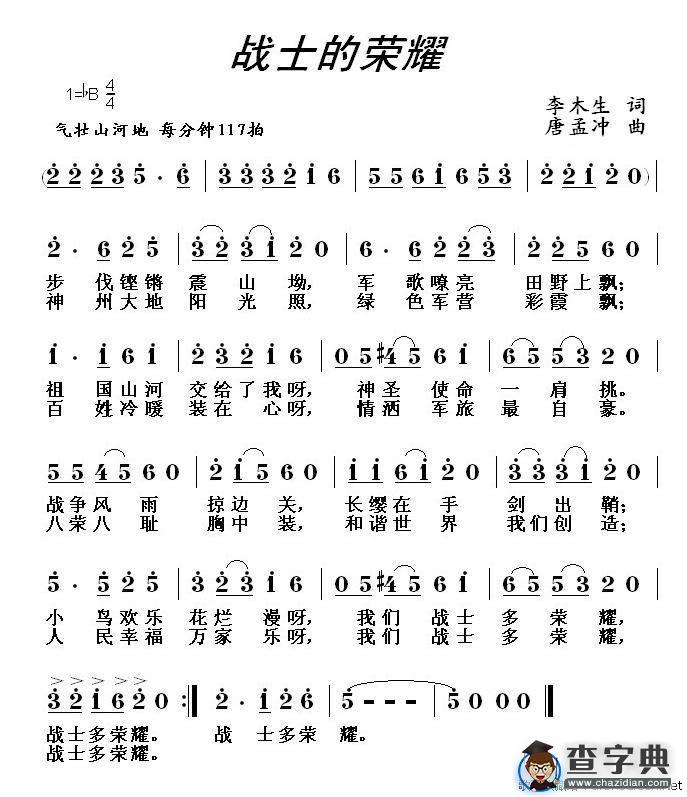 战士的荣耀
1=♭B 4/4
李木生 词
气壮山河地 每分钟117拍
唐孟冲 曲
(2̇ 2̇ 2̇ 3̇ 5̇ · 6̇ | 3̇ 3̇ 3̇ 2̇ 1̇ 6 | 5 5 6 1̇ 6 5 3̇ | 2̇ 2̇ 1̇ 2̇ 0)
2̇ · 6 2̇ 5̇ | 3̇ 2̇ 3̇ 1̇ 2̇ 0 | 6 · 6 2̇ 2̇ 3̇ | 5̇ 5̇ 2̇ 5̇ 6 0 |
步 伐铿锵 震 山 坳, 军 歌嘹亮 田野上飘;
神 州大地 阳 光 照, 绿 色军营 彩 霞 飘;
1̇ · 1̇ 6 6 1̇ | 2̇ 3̇ 2̇ 1̇ 6 | 0 5 #4 5 6 1̇ | 6 5 5 3̇ 0 |
祖 国山河 交给了我呀, 神圣 使命 一 肩 挑。
百 姓冷暖 装在 心呀, 情洒 军旅 最 自 豪。
5 5 4 5 6 0 | 2̇ 1̇ 5 6 0 | 1̇ 1̇ 6 1̇ 2̇ 0 | 3̇ 3̇ 3̇ 1̇ 2̇ 0 |
战争风 雨 掠边 关, 长缨在 手 剑 出 鞘;
八荣八 耻 胸中 装, 和谐世 界 我们创 造;
5 · 5̇ 2̇ 5̇ | 3̇ 2̇ 3̇ 1̇ 6 | 0 5 #4 5 6 1̇ | 5̇ 2̇ 2̇ 2̇ 0 |
小 鸟欢乐 花烂 漫呀, 我们 战士 多 荣 耀,
人 民幸福 万家 乐呀, 我们 战士 多 荣 耀,
> > > > >
3̇ 2̇ 1̇ 6 2̇ 0 :‖ 2̇ · 1̇ 2̇ 6 | 5 – – – | 5 0 0 0 ‖
战士多荣耀。 战 士多荣 耀。
战士多荣耀。
查字典
www.chazidian.com